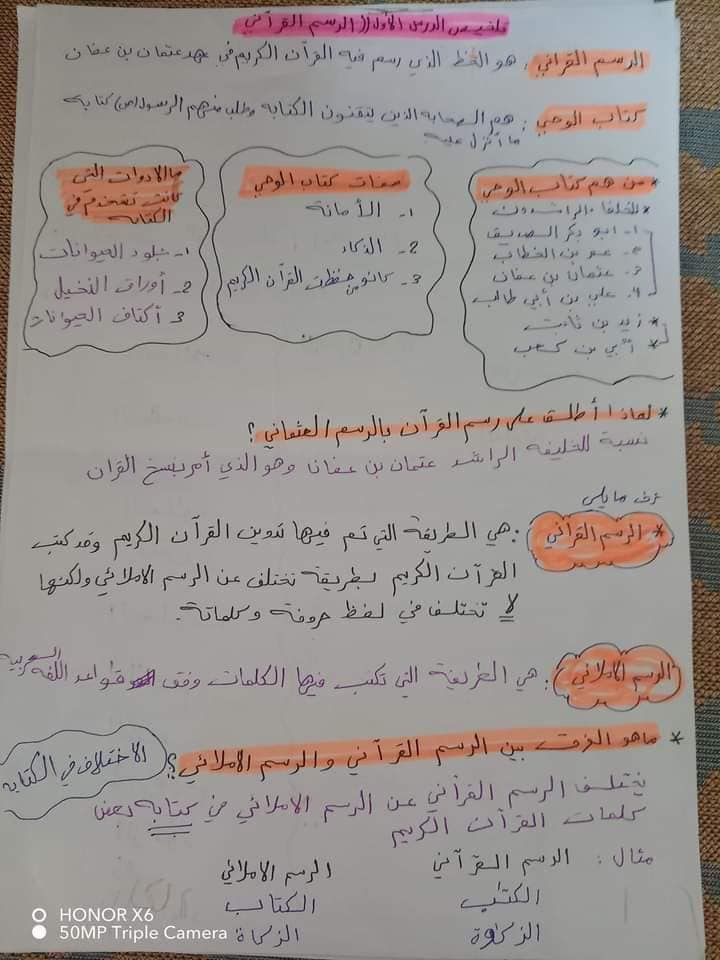 تلخيص الدرس الأول ((الرسم القرآني
الرسم القرآني : هو الخط الذي رسم فيه القرآن الكريم في عهد عثمان بن عفان
كتاب الوحي : هم الصحابه الذين يتقنون الكتابه وطلب منهم الرسول (ص) كتابه
ما أنزل عليه
* من هم كتاب الوحي
* الخلفاء الراشدون
1- ابو بكر الصديق
2- عمر بن الخطاب
3- عثمان بن عفان
4- علي بن أبي طالب
* زيد بن ثابت
* أبي بن كعب
صفات كتاب الوحي
1- الأمانة
2- الذكاء
3- كانو من حفظت القرآن الكريم
ما الادوات التي
كانت تستخدم في
الكتابه
1- جلود الحيوانات
2- أوراق النخيل
3- أكتاف الحيوانات
* لماذا أطلق على رسم القرآن بالرسم العثماني ؟
نسبة للخليفه الراشد عثمان بن عفان وهو الذي أمر بنسخ القران
عرف مايلي
* الرسم القرآني : هي الطريقة التي تم فيها تدوين القرآن الكريم وقد كتب
القرآن الكريم بطريقة تختلف عن الرسم الاملائي ولكنها
لا تختلف في لفظ حروفة وكلماتة.
الرسم الاملائي : هي الطريقة التي تكتب فيها الكلمات وفق قواعد اللغه العربيه
* ماهو الفرق بين الرسم القرآني والرسم الاملائي؟
الاختلاف في الكتابه
يختلف الرسم القرآني عن الرسم الاملائي في كتابه بعض
كلمات القرآن الكريم
مثال : الرسم القرآني الرسم الاملائي
الكتٰب الكتاب
الزكوٰة الزكاة
HONOR X6
50MP Triple Camera